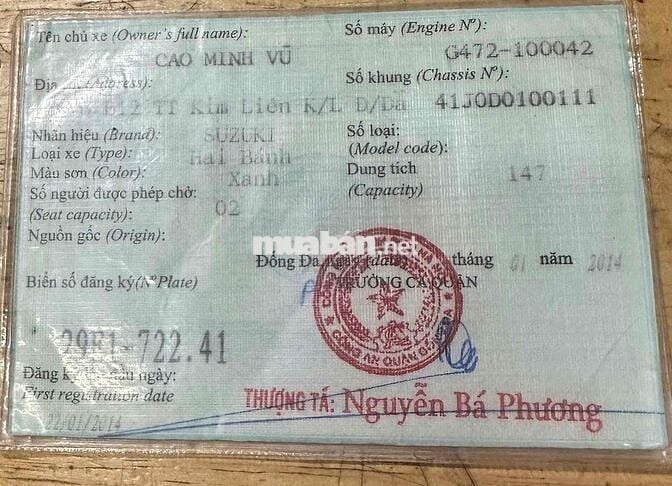 Tên chủ xe (Owner's full name):
CAO MINH VŨ
Số máy (Engine Nº):
G472-100042
Địa (Address):
E12 TT Kim Liên K/L Đ/Đa
Số khung (Chassis Nº):
41J0D0100111
Nhãn hiệu (Brand): SUZUKI
Số loại:
(Model code):
Loại xe (Type): Hai Bánh
Màu sơn (Color): Xanh
Dung tích
(Capacity)
147
Số người được phép chở:
(Seat capacity): 02
Nguồn gốc (Origin):
muaban.net
Đống Đa, ngày (date) tháng 01 năm 2014
TRƯỞNG CA QUẬN
Biển số đăng ký(Nº Plate)
29E1-722.41
CÔNG AN QUẬN
Đăng ký lần đầu ngày:
First registration date
22/01/2014
THƯỢNG TÁ: Nguyễn Bá Phương